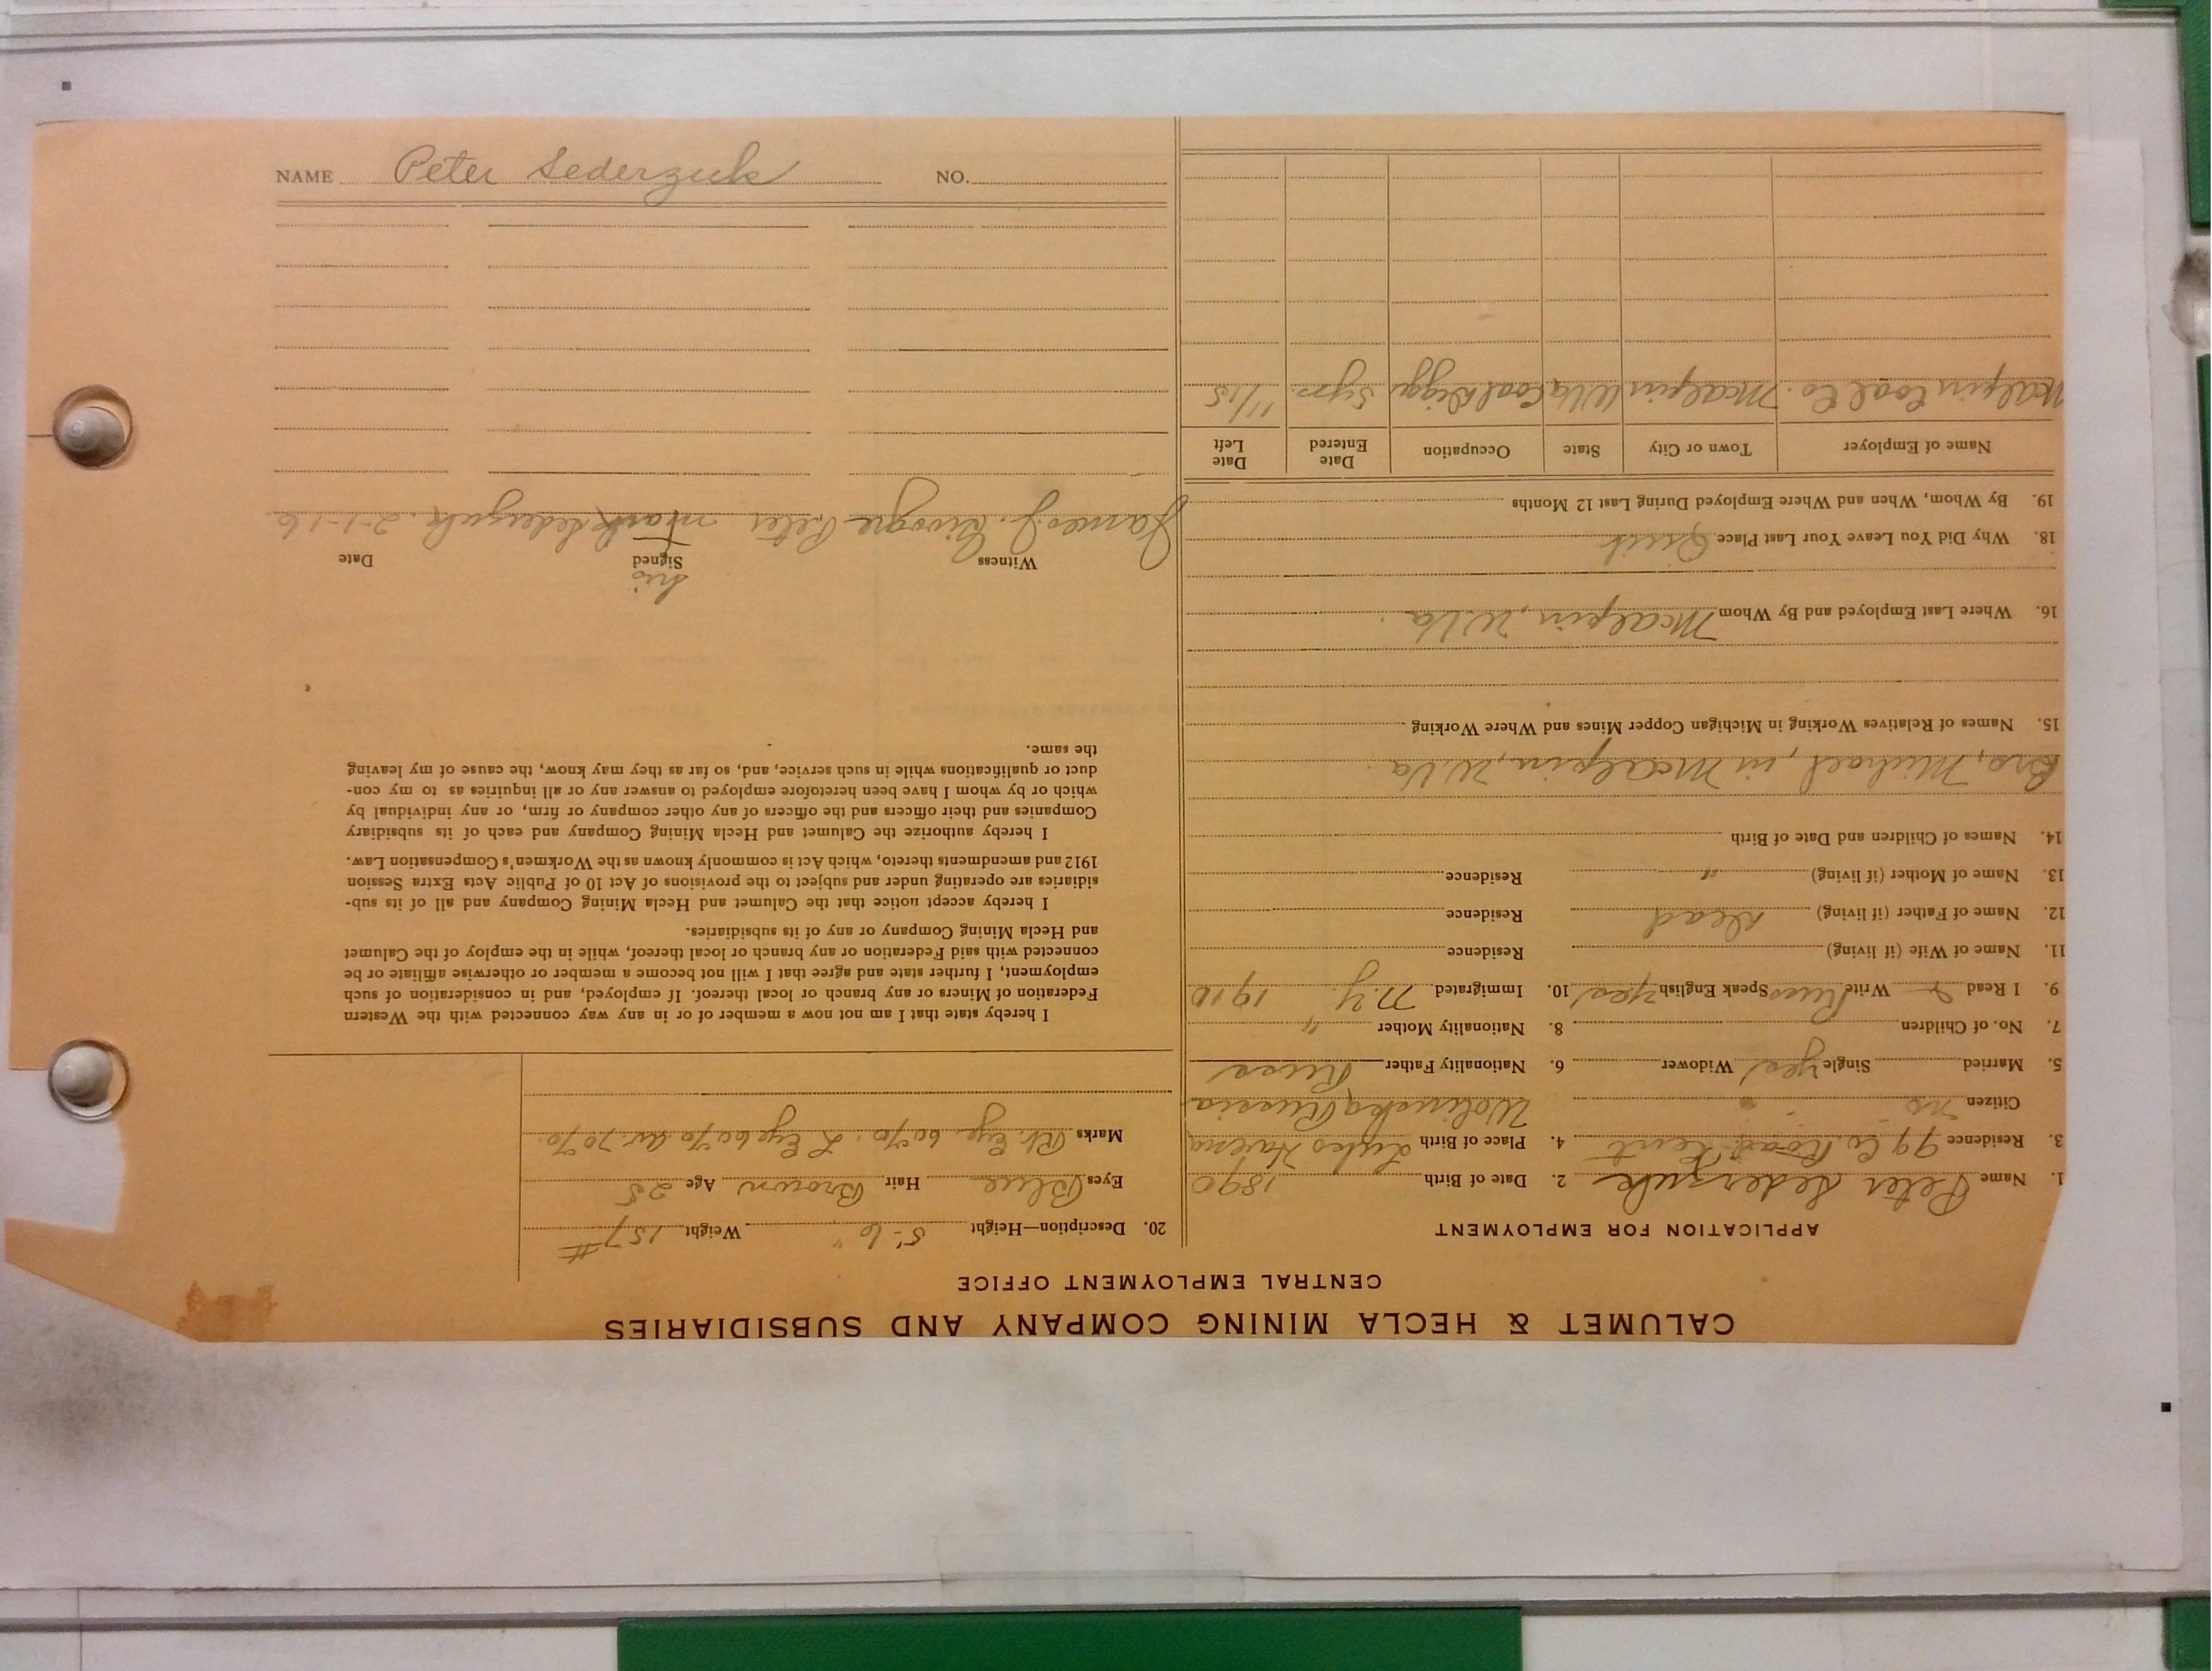 CALUMET & HECLA MINING COMPANY AND SUBSIDIARIES
CENTRAL EMPLOYMENT OFFICE
APPLICATION FOR EMPLOYMENT
1. Name Peter Sederzuk 2. Date of Birth 1890
3. Residence 99 Co. Road Kent 4. Place of Birth
Citizen no Wolinska Russia
5. Married Single yes Widower 6. Nationality Father Russ
7. No. of Children 8. Nationality Mother "
9. I Read Write Russ Speak English yes 10. Immigrated N.Y. 1910
11. Name of Wife (if living) Residence
12. Name of Father (if living) dead Residence
13. Name of Mother (if living) " Residence
14. Names of Children and Date of Birth
Bro, Michael, in McAlpin, W.Va.
15. Names of Relatives Working in Michigan Copper Mines and Where Working
16. Where Last Employed and By Whom McAlpin, W.Va.
18. Why Did You Leave Your Last Place Quit
19. By Whom, When and Where Employed During Last 12 Months
Name of Employer Town or City State Occupation Date Entered Date Left
McAlpin Coal Co. McAlpin W.Va Coal Digger 5 yrs. 11/15
20. Description—Height 5'-6" Weight 157#
Eyes Blue Hair Brown Age 25
Marks Rt. Eye 60% L Eye 60% av. 70%.
I hereby state that I am not now a member of or in any way connected with the Western
Federation of Miners or any branch or local thereof. If employed, and in consideration of such
employment, I further state and agree that I will not become a member or otherwise affiliate or be
connected with said Federation or any branch or local thereof, while in the employ of the Calumet
and Hecla Mining Company or any of its subsidiaries.
I hereby accept notice that the Calumet and Hecla Mining Company and all of its sub-
sidiaries are operating under and subject to the provisions of Act 10 of Public Acts Extra Session
1912 and amendments thereto, which Act is commonly known as the Workmen's Compensation Law.
I hereby authorize the Calumet and Hecla Mining Company and each of its subsidiary
Companies and their officers and the officers of any other company or firm, or any individual by
which or by whom I have been heretofore employed to answer any or all inquiries as to my con-
duct or qualifications while in such service, and, so far as they may know, the cause of my leaving
the same.
his
Witness Signed Date
James J. Peter mark Sederzuk. 2-1-16.
NAME Peter Sederzuk NO.